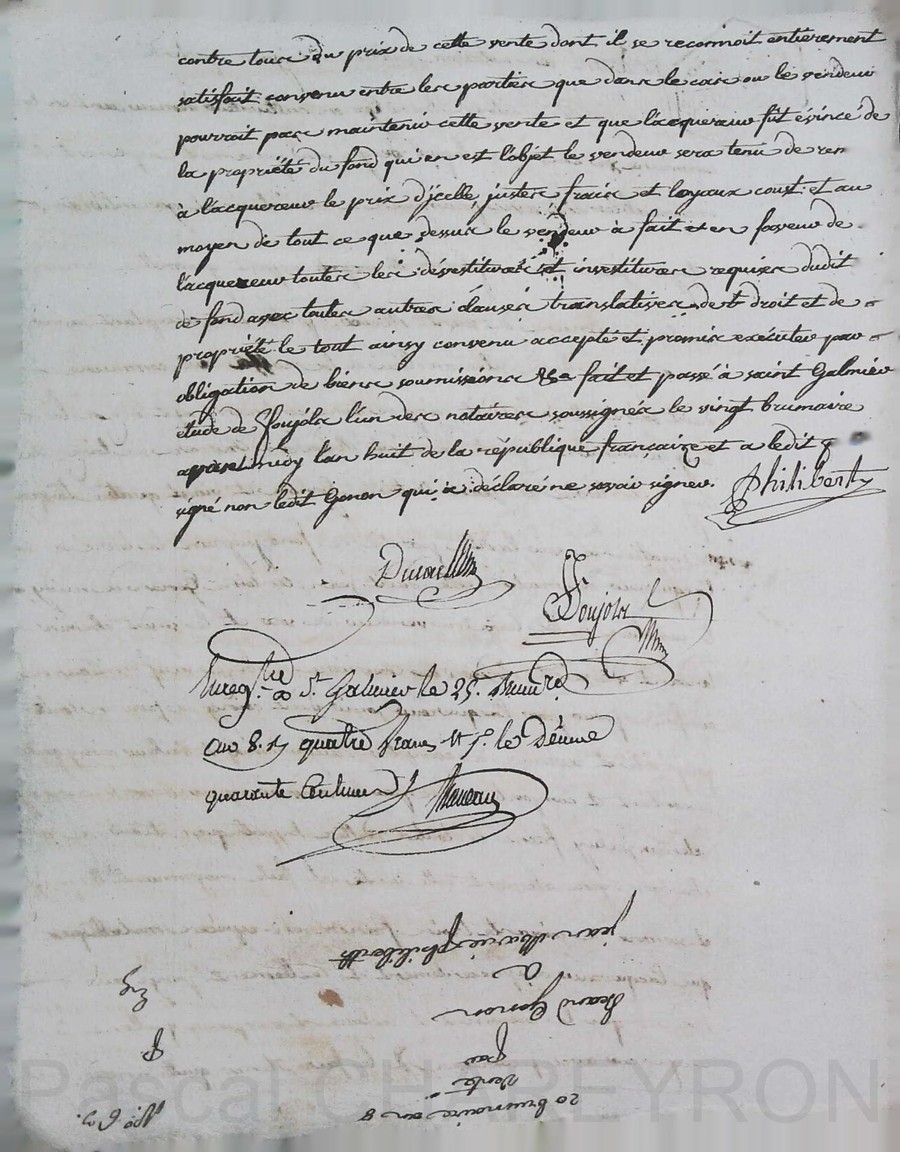 contre tous du prix de cette vente dont il se reconnoit entièrement
satisfait convenu entre les parties que dans le cas ou le vendeur
pourroit pas maintenir cette vente et que l'acquereur fut évincé de
la propriété du fond qui en est l'objet le vendeur sera tenu de ren
à l'acquereur le prix d'jcelle, justes, frais et loyaux coust. et au
moyen de tout ce que dessus le vendeur à fait et en faveur de
l'acquereur toutes les dévestitures et investitures requises dudit
de fond avec toutes autres clauses translatives de droit et de
propriété le tout ainsy convenu accepté et promis exécuter par
obligation de biens soumissions &a fait et passé à saint Galmier
étude de Poujols l'un des notaires soussignés le vingt brumaire
apres midy l'an huit de la république française et a ledit
signé non ledit Gonon qui a déclaré ne savoir signer. Philibert
Poujols
Enreg.tré a St Galmier le 25. brum.re
an 8. quatre francs et p.r le Décime
quarante Centimes
20 brumaire an 8
vente
par
Jean Gonon
a
jean Marie philibert
Pascal CHAPEYRON